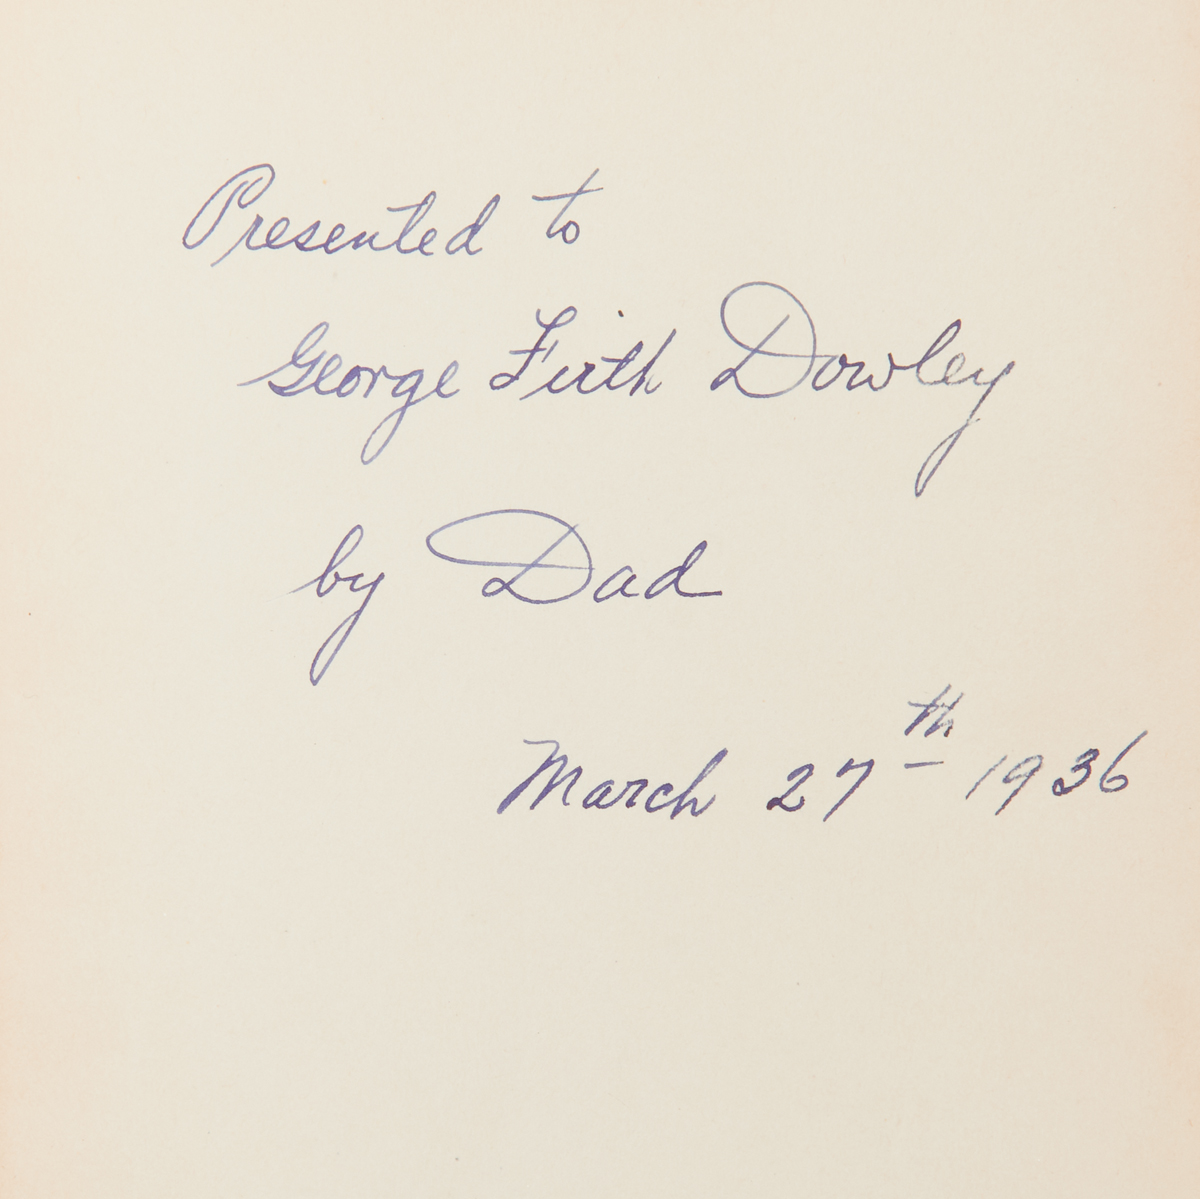 Presented to
George Firth Dowley
by Dad
March 27th 1936